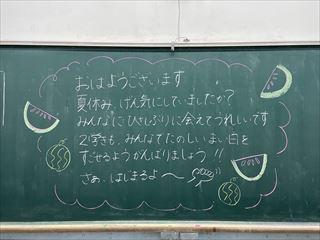 おはようございます
夏休み、げん気にしていましたか?
みんなにひさしぶりに会えてうれしいです
2学きも、みんなでたのしいまい日を
すごせるようがんばりましょう!!
さぁ、はじまるよ〜